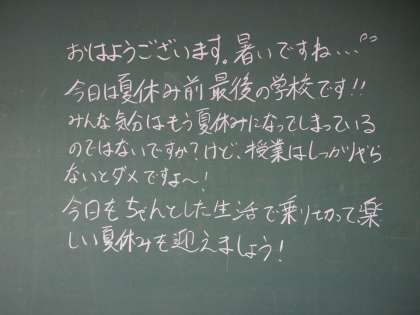 おはようございます。暑いですね…
今日は夏休み前最後の学校です!!
みんな気分はもう夏休みになってしまっている
のではないですか?けど、授業はしっかりやら
ないとダメですよ〜!
今日もちゃんとした生活で乗り切って楽
しい夏休みを迎えましょう!